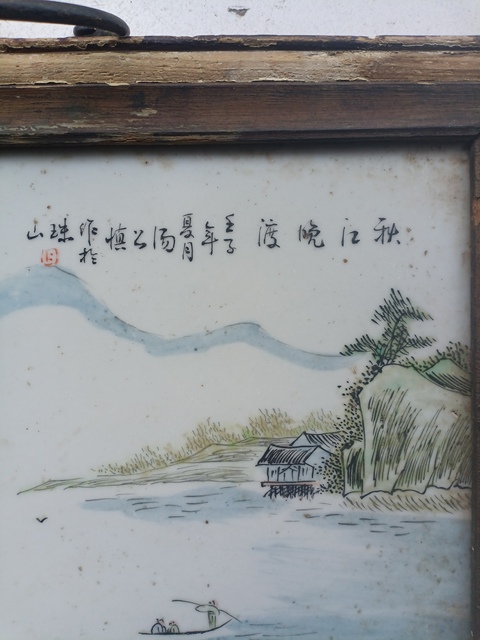 秋江晚渡 壬子年夏月汤公慎作於珠山